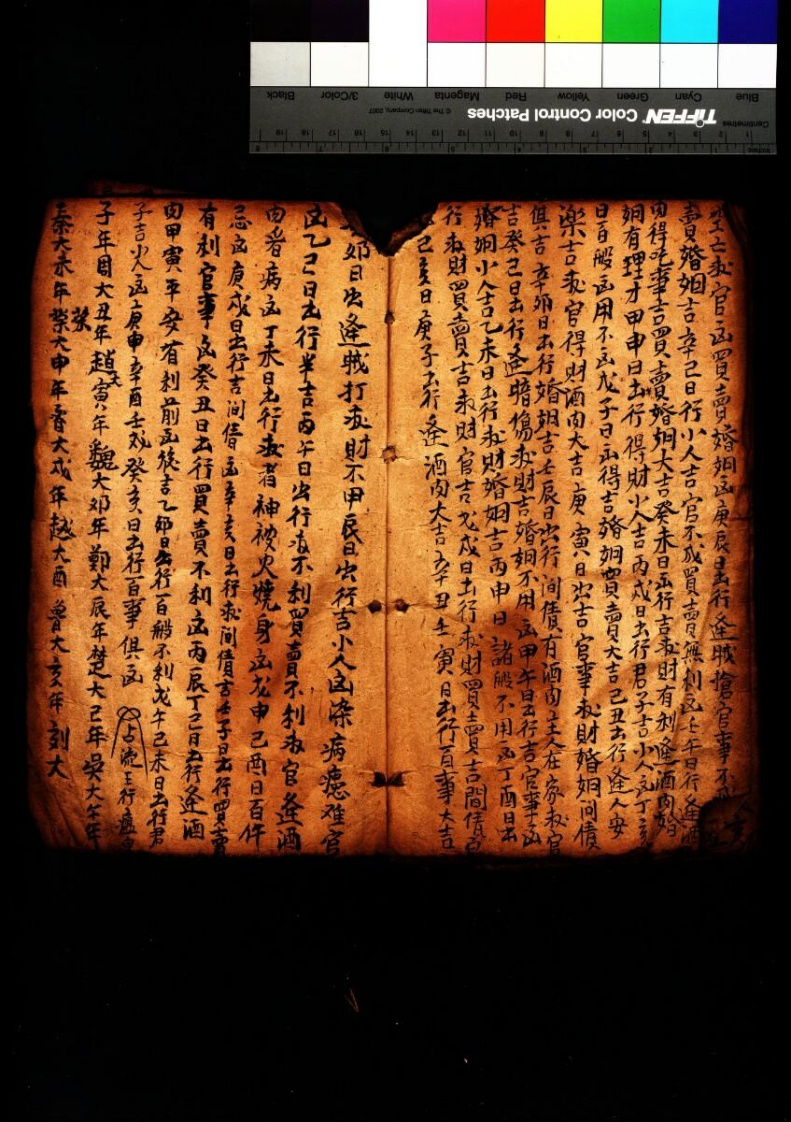 亡求官凶買賣婚姻凶庚辰日出行逢賊搶官事不
賣婚姻吉辛己日行小人吉官不成買賣無利凶壬午日行逢酒
肉得吃事吉買賣婚姻大吉癸未日出行吉求財有利逢酒肉婚
姻有理才甲申日出行得財小人吉丙戌日出行君子吉小人凶丁亥
日百般凶用不凶戊子日出得吉婚姻買賣大吉己丑出行逢人安
樂吉求官得財酒肉大吉庚寅日出吉官事求財婚姻间債
俱吉辛卯日出行婚姻吉壬辰日出行间債有酒肉主人在家求官
吉癸己日出行逢暗傷求財吉婚姻不用凶甲午日出行吉官事凶
婚姻小人吉乙未日出行求財婚姻吉丙申日諸般不用凶丁酉日出
行求財買賣吉求財官吉戊戌日出行求財買賣吉間債官
己亥日庚子出行逢酒肉大吉辛丑壬寅日出行百事大吉
卯日出逢賊打求財不甲辰日出行吉小人凶染病瘧难官
凶乙己日出行半吉丙午日出行求不利買賣不利求官逢酒
肉者病凶丁未日出行求者神被火燒身凶戊申己酉日百件
忌凶庚戌日出行吉间債凶辛亥日出行求间債吉壬子日出行買賣
有利官事凶癸丑日出行買賣不利凶丙辰丁己日出行逢酒
肉甲寅平安有利前凶後吉乙卯日出行百般不利戊午己未日出行君
子吉小人凶庚申辛酉壬戌癸亥日出行百事俱凶 占 王行瘟
子年周大丑年趙大寅年魏大卯年鄭大辰年楚大己年吳大午年
秦大未年 荣 大申年晉大戌年越大酉魯大亥年刘大
TIFFEN Color Control Patches
© The Tiffen Company, 2007
Blue Cyan Green Yellow Red Magenta White 3/Color Black
Centimetres
Inches